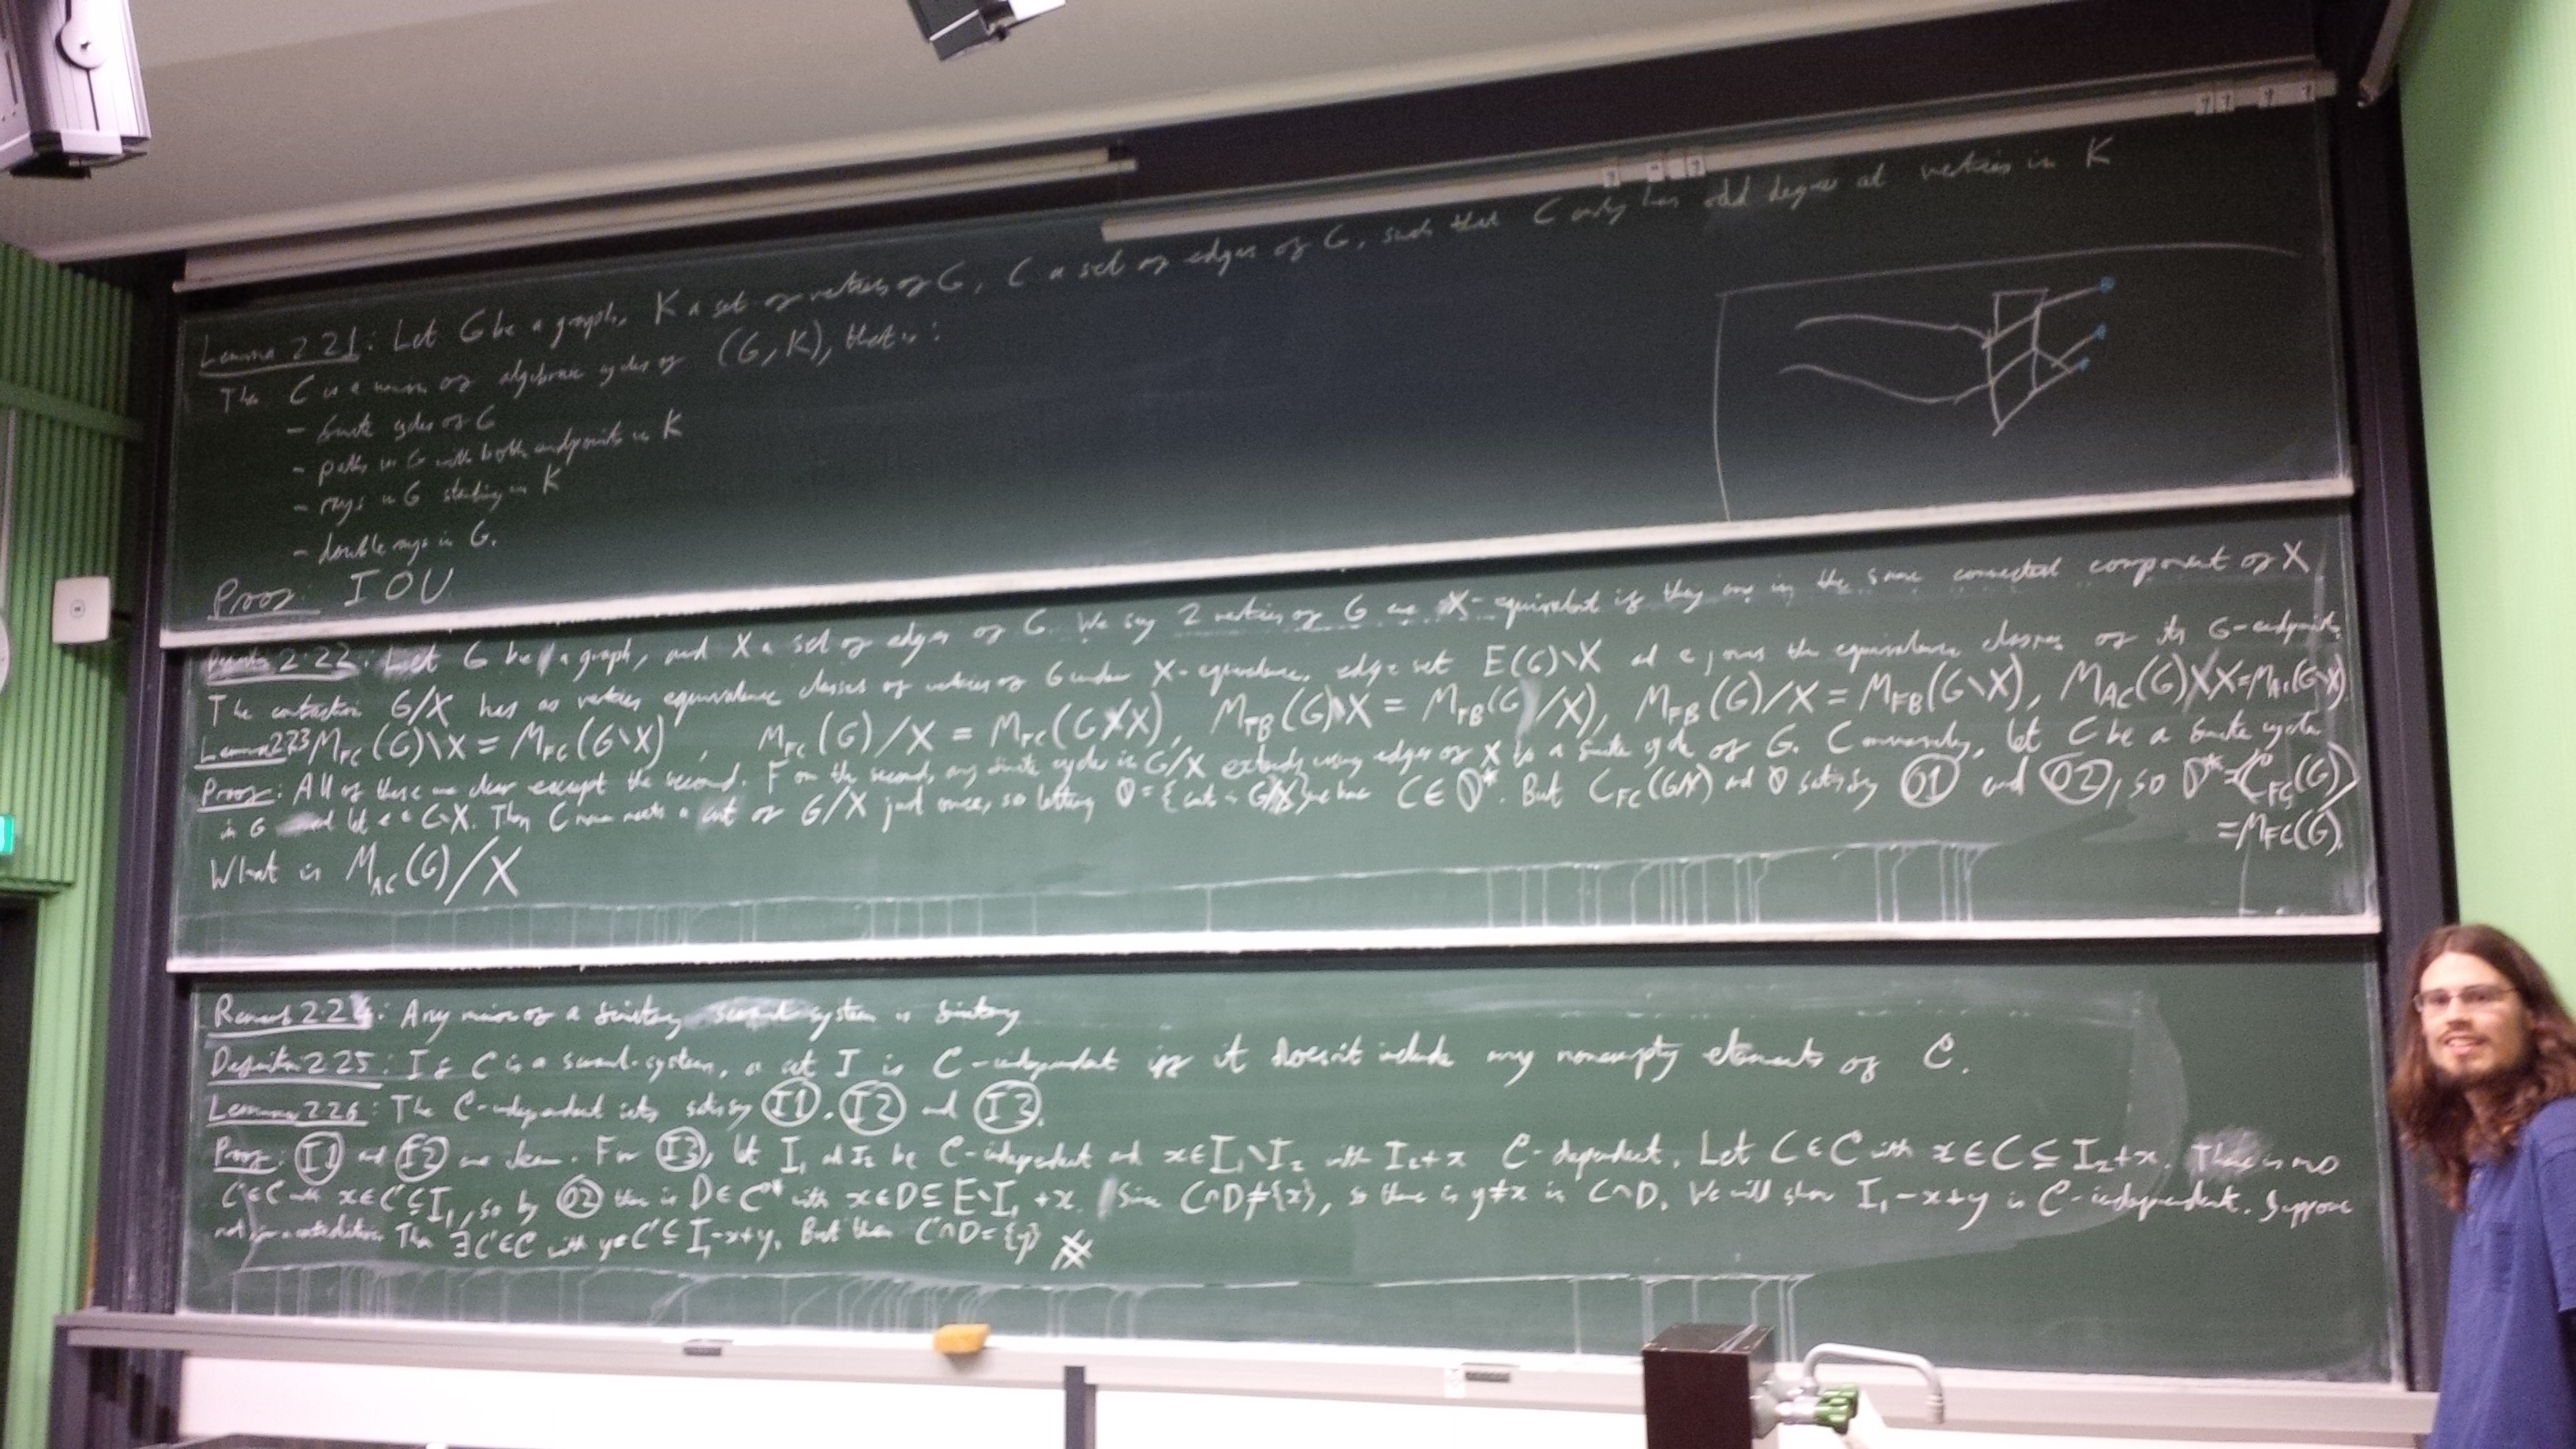 Lemma 2.21: Let G be a graph, K a set of vertices of G, C a set of edges of G, such that C only has odd degree at vertices in K
The C is a union of algebraic cycles of (G, K), that is:
- finite cycles of G
- paths in G with both endpoints in K
- rays in G starting in K
- double rays in G.
Proof: IOU
2.22: Let G be a graph, and X a set of edges of G. We say 2 vertices of G are X-equivalent if they are in the same connected component of X
The contraction G/X has as vertices equivalence classes of vertices of G under X-equivalence, edge set E(G)\X and e joins the equivalence classes of its G-endpoints.
Lemma 2.23 M_FC(G)\X = M_FC(G\X), M_FC(G)/X = M_FC(G/X), M_FB(G)\X = M_FB(G/X), M_FB(G)/X = M_FB(G\X), M_AC(G)\X = M_AC(G\X)
Proof: All of these are clear except the second. For the second, any finite cycle in G/X extends using edges of X to a finite cycle of G. Conversely, let C be a finite cycle
in G and let e ∈ C\X. Then C never meets a cut of G/X just once, so letting D = {cuts in G/X} we have C ∈ D*. But C_FC(G/X) and D satisfy (O1) and (O2), so D* = C_FC(G)
= M_FC(G).
What is M_AC(G)/X
Remark 2.24: Any minor of a finitary system is finitary
Definition 2.25: If C is a scrawl-system, a set I is C-independent if it doesn't include any nonempty elements of C.
Lemma 2.26: The C-independent sets satisfy (I1), (I2) and (I3).
Proof: (I1) and (I2) are clear. For (I3), let I₁ and I₂ be C-independent and x∈I₁\I₂ with I₂+x C-dependent. Let C∈C with x∈C⊆I₂+x. There is no
C'∈C with x∈C'⊆I₁, so by (O2) there is D∈C* with x∈D⊆E\I₁+x. Since C∩D≠{x}, so there is y≠x in C∩D. We will show I₁-x+y is C-independent. Suppose
not for a contradiction. Then ∃C'∈C with y∈C'⊆I₁-x+y. But then C'∩D={y}